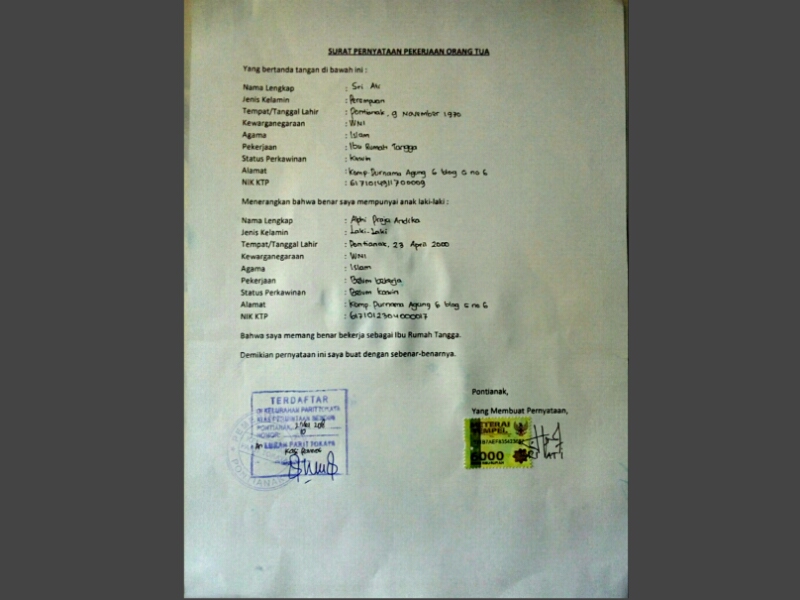 SURAT PERNYATAAN PEKERJAAN ORANG TUA
Yang bertanda tangan di bawah ini :
Nama Lengkap : Sri Ati
Jenis Kelamin : Perempuan
Tempat/Tanggal Lahir : Pontianak, 9 November 1970
Kewarganegaraan : WNI
Agama : Islam
Pekerjaan : Ibu Rumah Tangga
Status Perkawinan : Kawin
Alamat : Komp. Purnama Agung 6 blog G no 6
NIK KTP : 6171014911700009
Menerangkan bahwa benar saya mempunyai anak laki-laki :
Nama Lengkap : Praja Andika
Jenis Kelamin : Laki-Laki
Tempat/Tanggal Lahir : Pontianak, 23 April 2000
Kewarganegaraan : WNI
Agama : Islam
Pekerjaan : Belum bekerja
Status Perkawinan : Belum kawin
Alamat : Komp. Purnama Agung 6 blog G no 6
NIK KTP : 6171012304000017
Bahwa saya memang benar bekerja sebagai Ibu Rumah Tangga.
Demikian pernyataan ini saya buat dengan sebenar-benarnya.
Pontianak,
Yang Membuat Pernyataan,
TERDAFTAR
DI KELURAHAN PARIT TOKAYA
PONTIANAK,
NOMOR
An LURAH PARIT TOKAYA
METERAI
TEMPEL
6000
SRI ATI